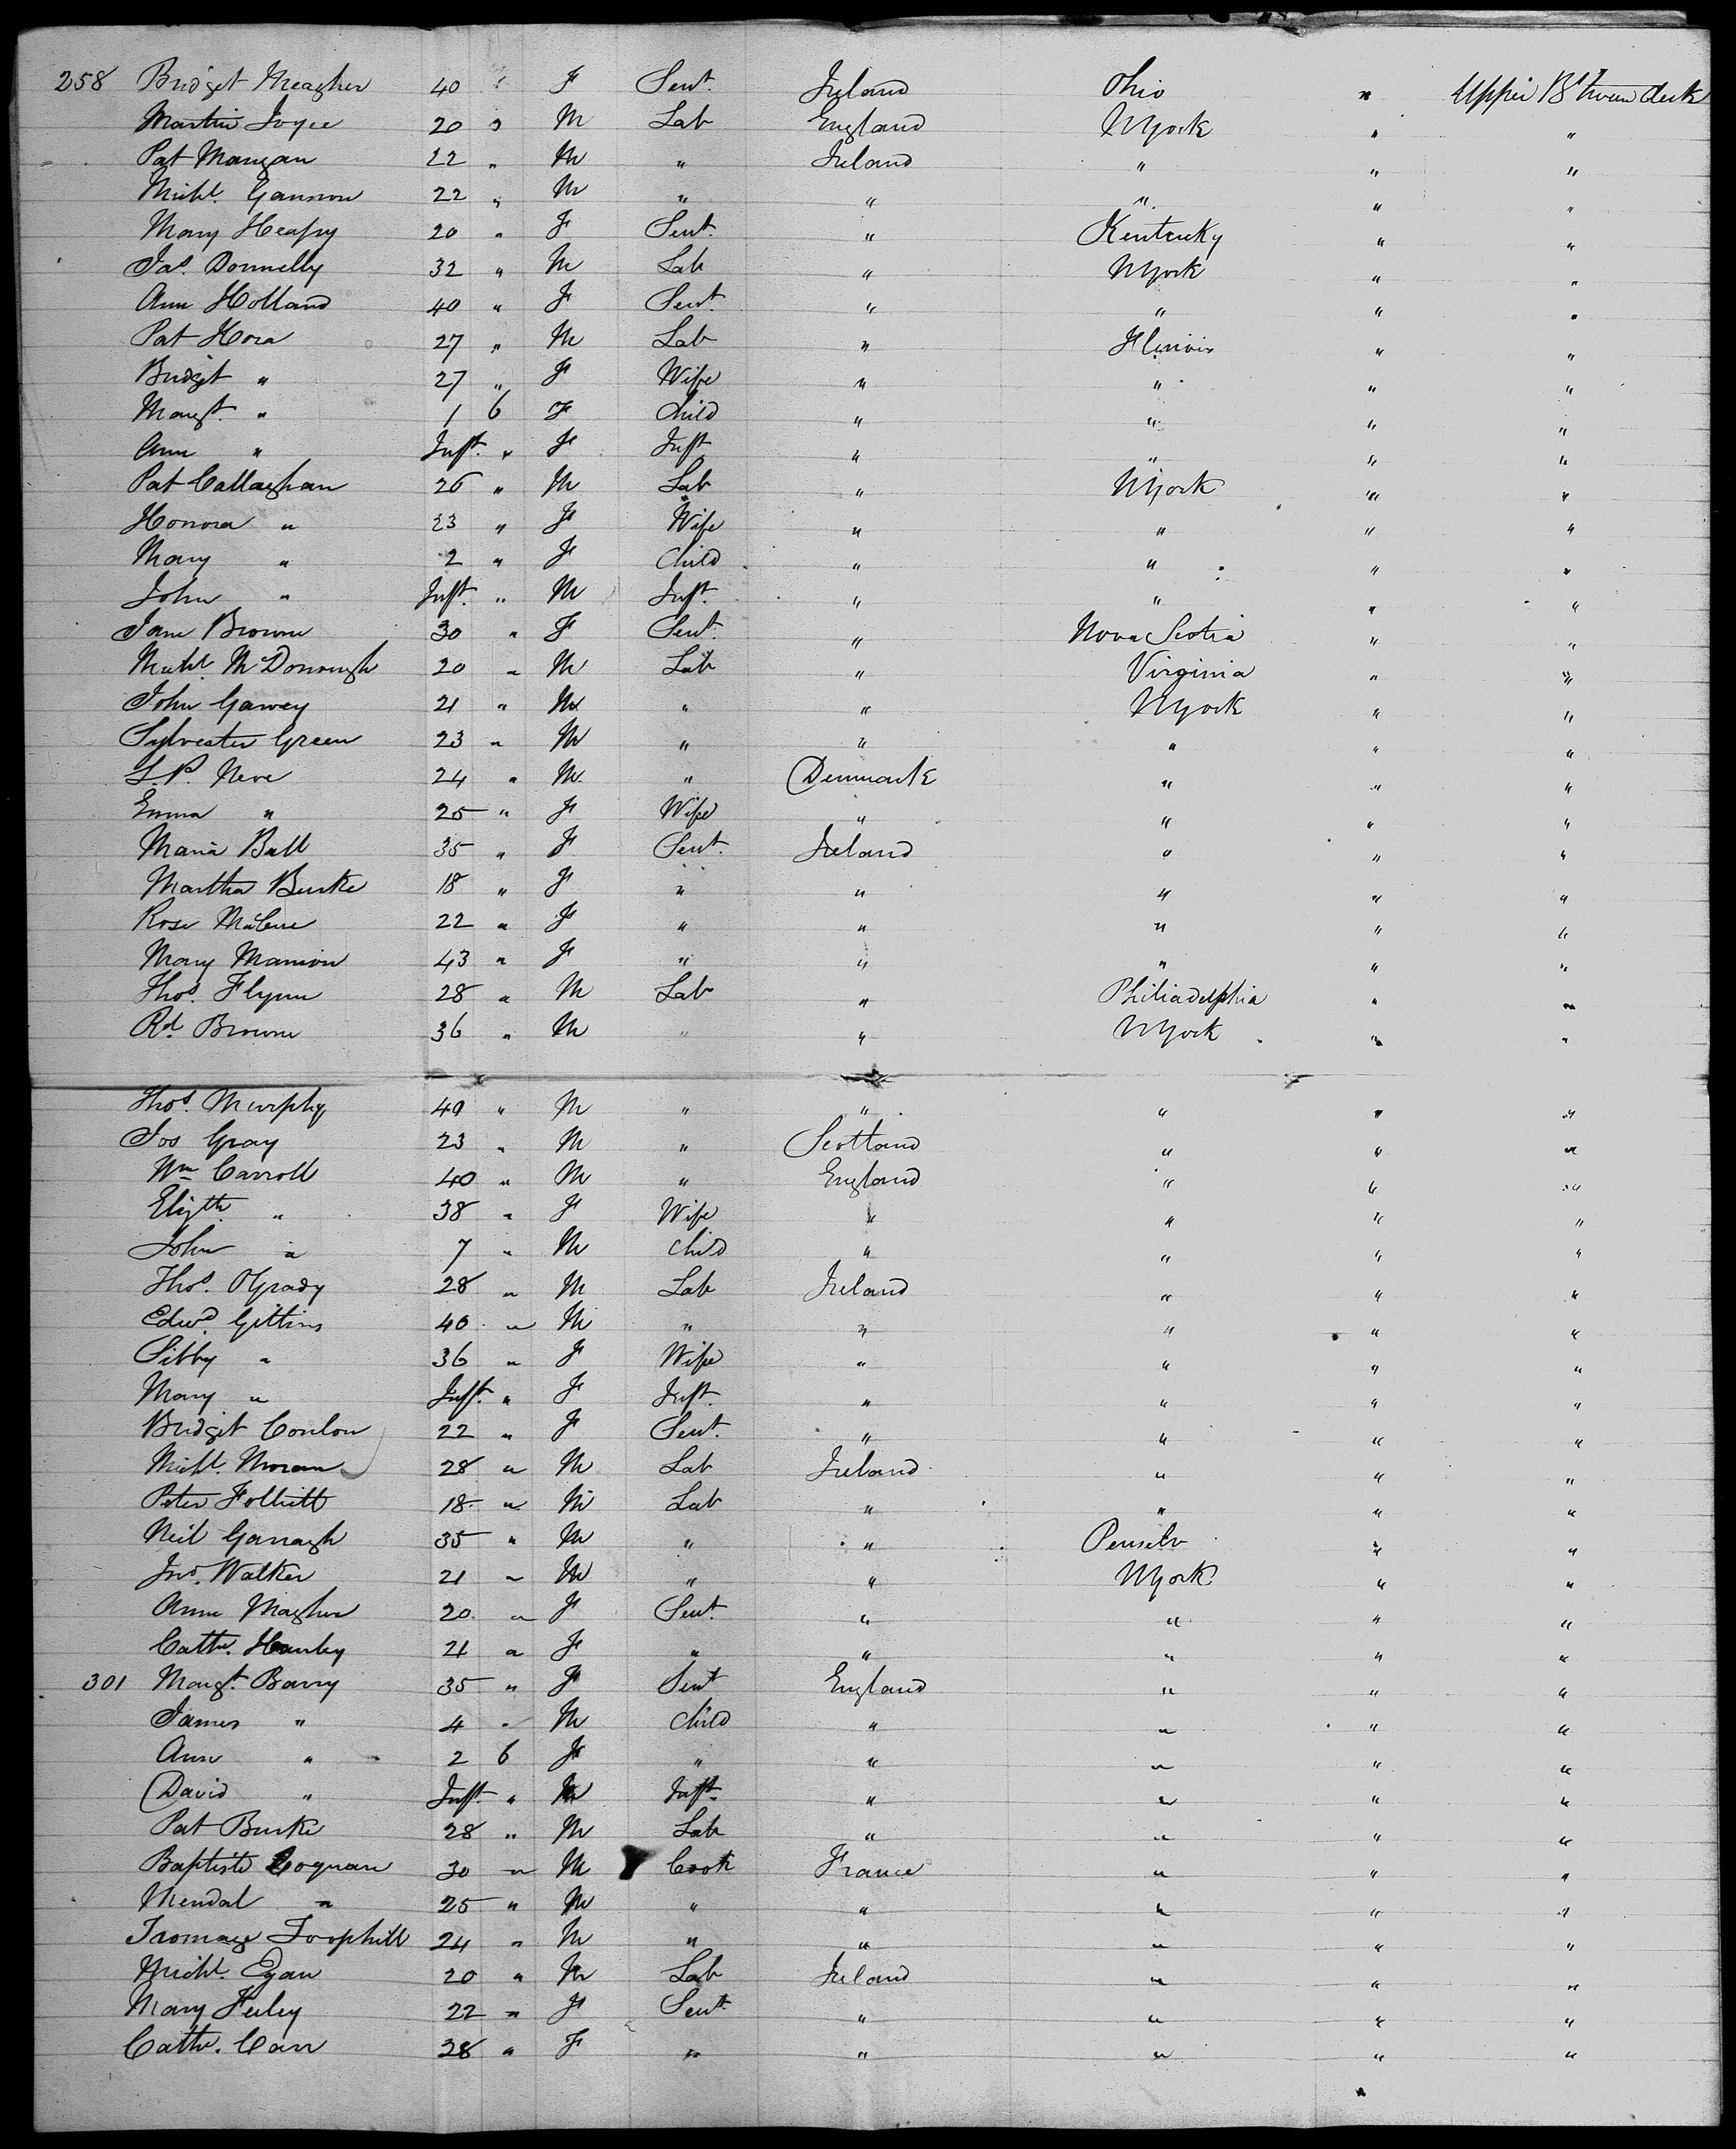 258 Bridget Meagher 40 " F Sert. Ireland Ohio " Upper Btween deck
Martin Joyce 20 " M Lab England NYork " "
Pat Mangan 22 " M " Ireland " " "
Michl. Gannon 22 " M " " " " "
Mary Heafey 20 " F Sert. " Kentucky " "
Jas. Donnelly 32 " M Lab " NYork " "
Ann Holland 40 " F Sert. " " " "
Pat Hora 27 " M Lab " Illinois " "
Bridget " 27 " F Wife " " " "
Margt. " 1 6 F Child " " " "
Ann " Inft. " F Inft " " " "
Pat Callaghan 26 " M Lab " NYork " "
Honora " 23 " F Wife " " " "
Mary " 2 " F Child " " " "
John " Inft. " M Inft. " " " "
Jane Browne 30 " F Sert. " Nova Scotia " "
Michl. McDonough 20 " M Lab " Virginia " "
John Gawey 21 " M " " NYork " "
Sylvester Green 23 " M " " " " "
L.P. Neve 24 " M " Denmark " " "
Emma " 25 " F Wife " " " "
Maria Ball 35 " F Sert. Ireland " " "
Martha Burke 18 " F " " " " "
Rose 22 " F " " " " "
Mary Mannion 43 " F " " " " "
Thos. Flynn 28 " M Lab " Philiadelphia " "
Rd. Browne 36 " M " " NYork " "
Thos. Murphy 40 " M " " " " "
Jos Gray 23 " M " Scotland " " "
Wm Carroll 40 " M " England " " "
Elizth. " 38 " F Wife " " " "
John " 7 " M Child " " " "
Thos. OGrady 28 " M Lab Ireland " " "
Edwd. Gittins 40 " M " " " " "
Sibby " 36 " F Wife " " " "
Mary " Inft. " F Inft. " " " "
Bridget Conlon 22 " F Sert. " " " "
Michl. Moran 28 " M Lab Ireland " " "
Peter Folliett 18 " M Lab " " " "
Neil Garragh 35 " M " " Penselv " "
Jno. Walker 21 " M " " NYork " "
Anne Magher 20 " F Sert. " " " "
Cathe. Hanley 21 " F " " " " "
301 Margt. Barry 35 " F Sert England " " "
James " 4 " M Child " " " "
Ann " 2 6 F " " " " "
David " Inft. " M Inft. " " " "
Pat Burke 28 " M Lab " " " "
Baptiste Coquan 30 " M Cook France " " "
Mendal " 25 " M " " " " "
Fromage Toophill 24 " M " " " " "
Michl. Egan 20 " M Lab Ireland " " "
Mary Feeley 22 " F Sert. " " " "
Cathe. Carr 28 " F " " " " "